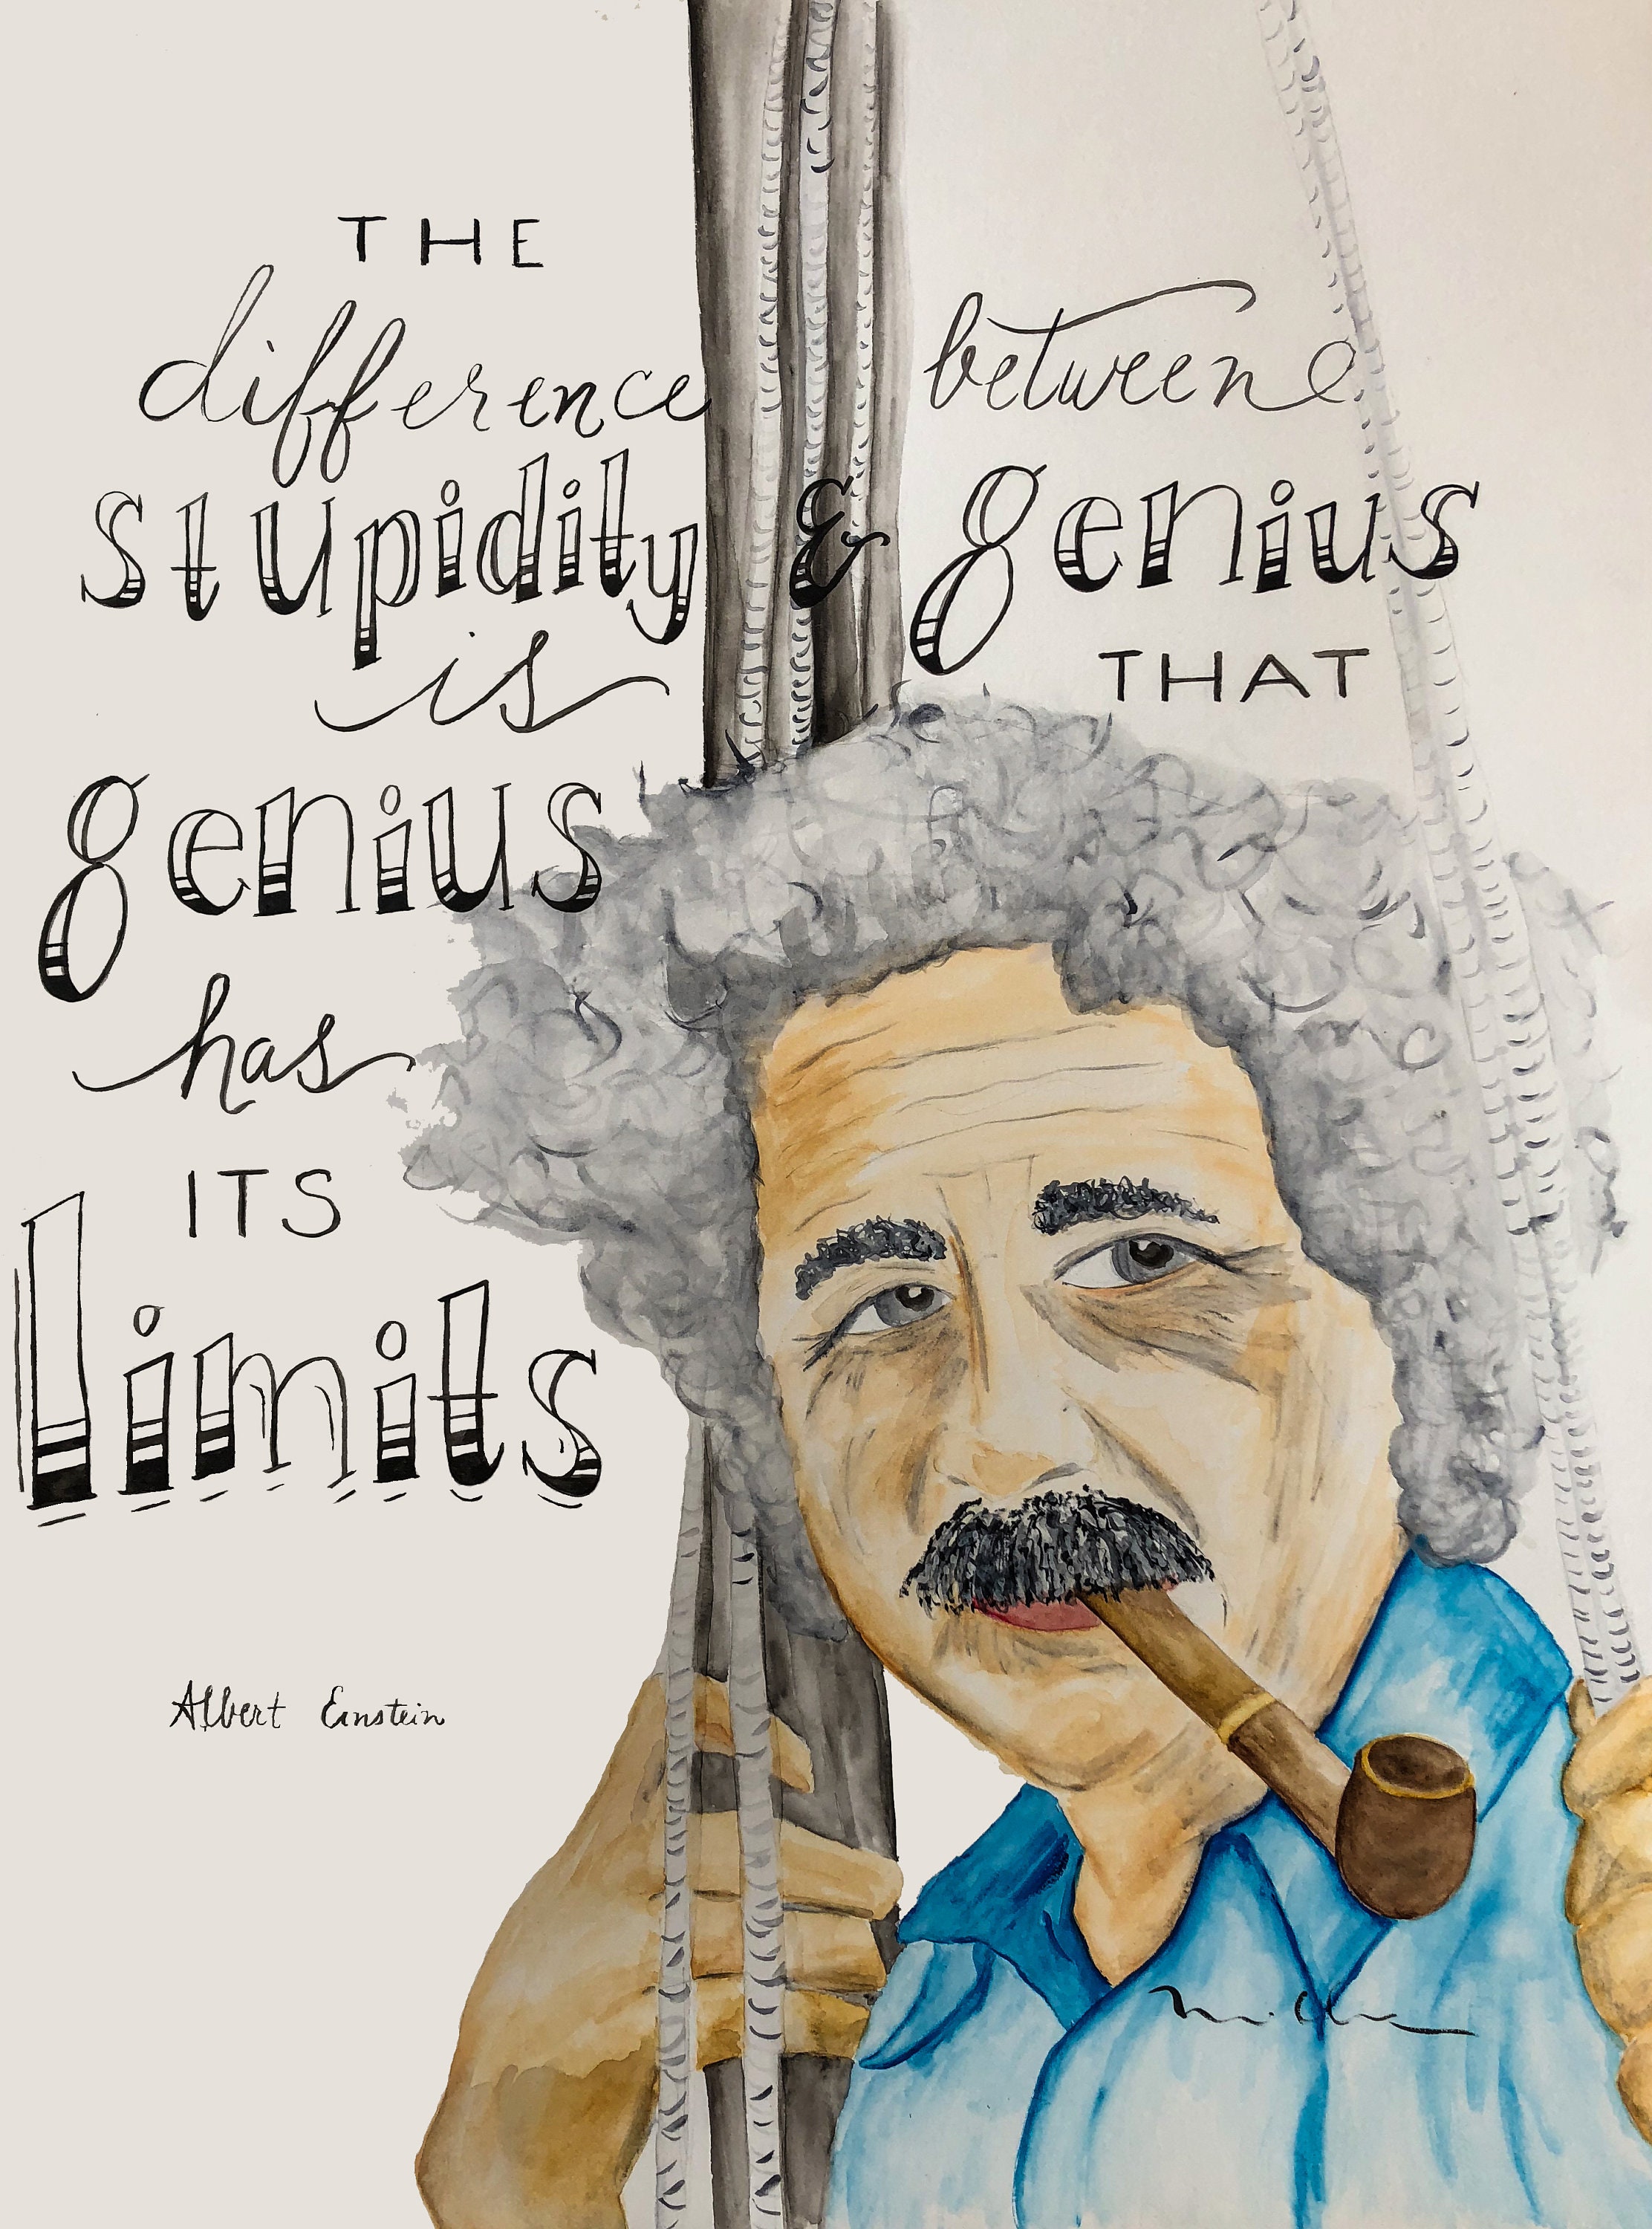 THE
difference between
stupidity & genius
is THAT
genius
has
ITS
limits
Albert Einstein